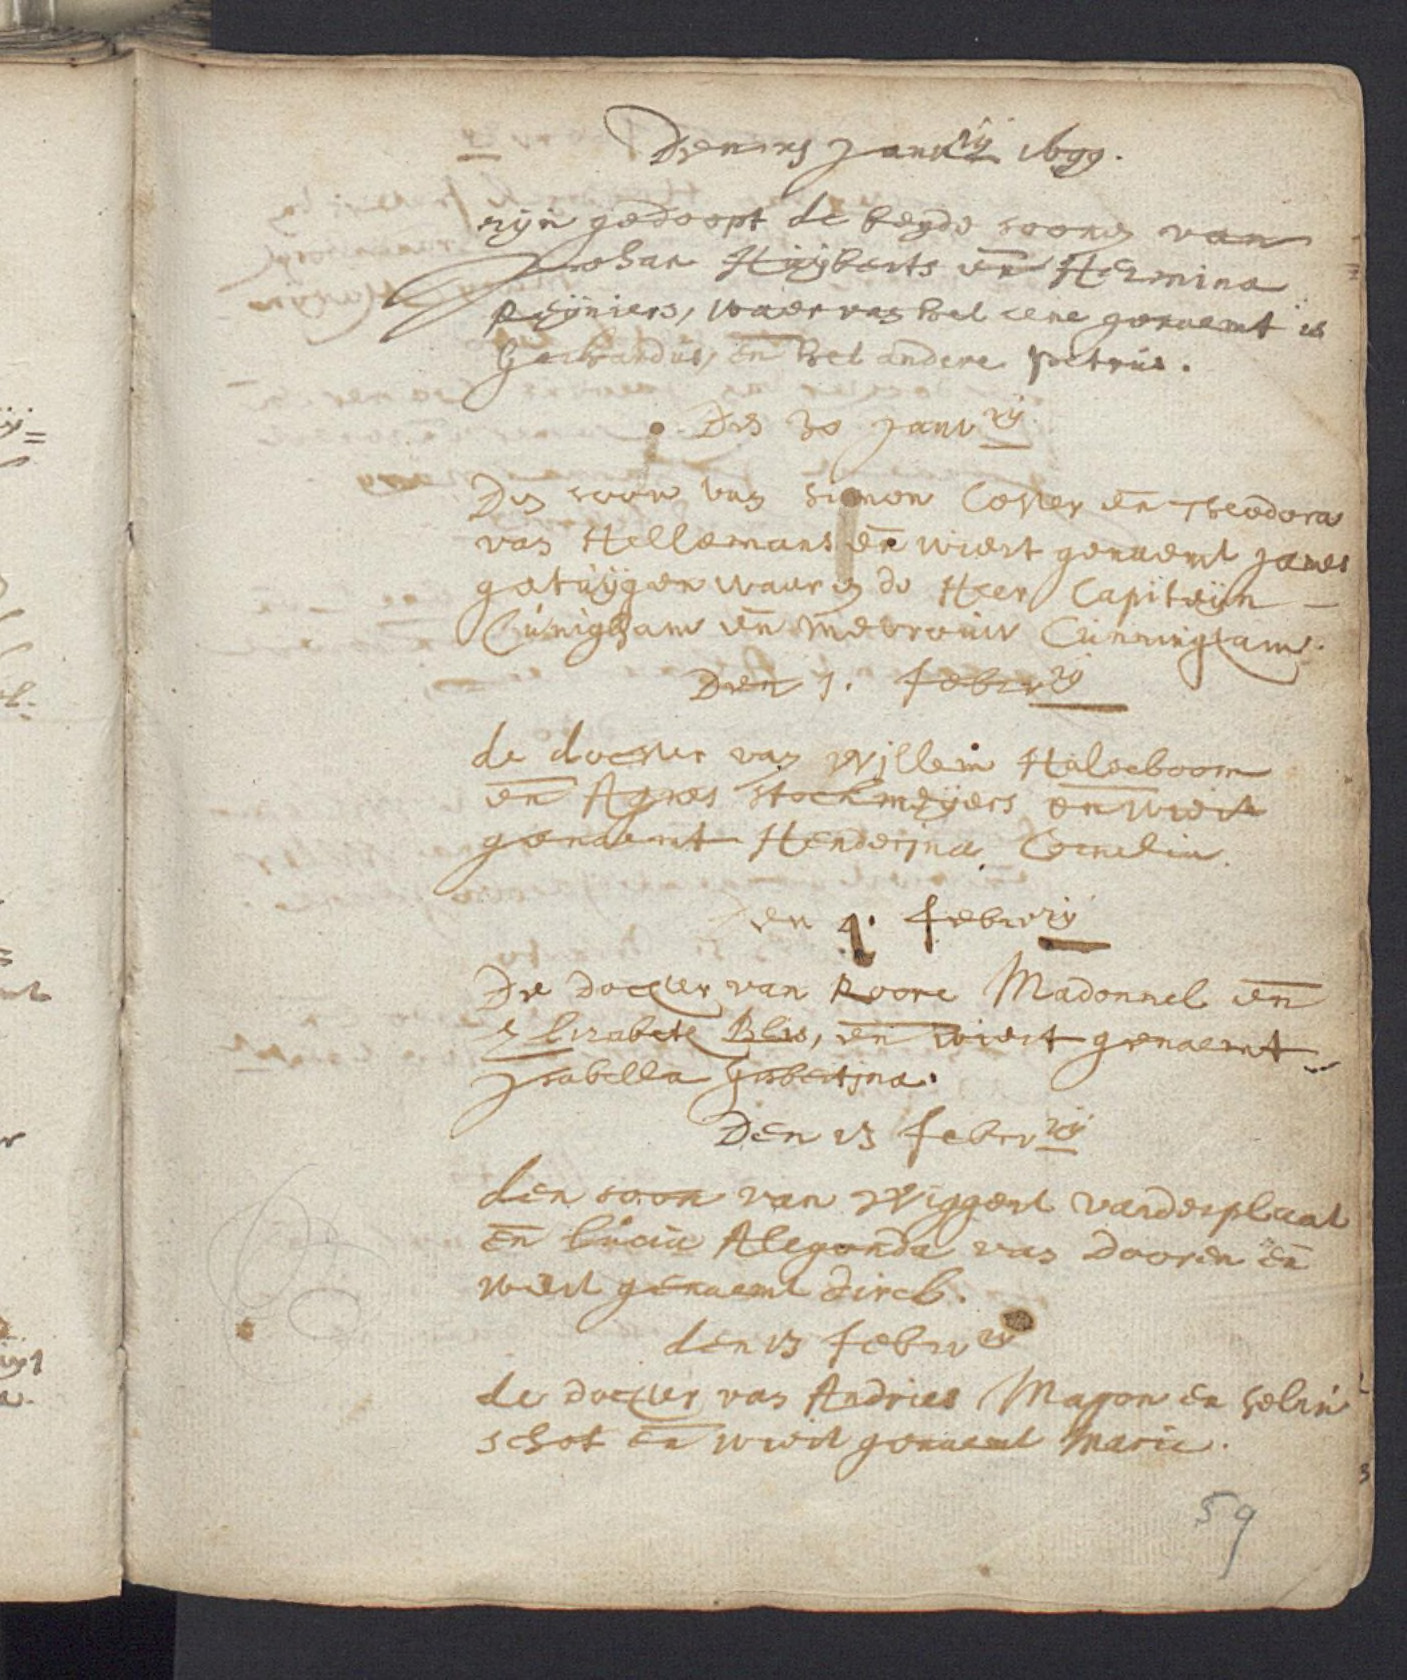 Januarij 1699.
zijn gedoopt de beijde soonen van
Johan Huijberts en Hermina
Reijniers, waer van het eene genaemt is
Gerbrandus, en het andere Petrus.
Den 30 Januarij
De soon van Simon Coster en Theodora
van Hellemans en wiert genaemt James
getuijgen waaren de Heer Capiteijn
Cuningham en mevrouw Cunningham.
Den 1. Febrrij
de dochter van Willem Haleboom
en Agnes Stockmeijers en wiert
genaemt Henderina Cornelia.
Den 1. Febrrij
De dochter van Roore Madonnel en
Elizabeth Blis, en wiert genaemt
Isabella Gisbertina.
Den 13 Febrrij
den soon van Wiggert vanderplaat
en Lucia Alegonda van Dooren en
wiert genaemt Dirck.
den 13 Febrrij
de dochter van Andries Mason en
schot en wiert genaemt Marie.
59